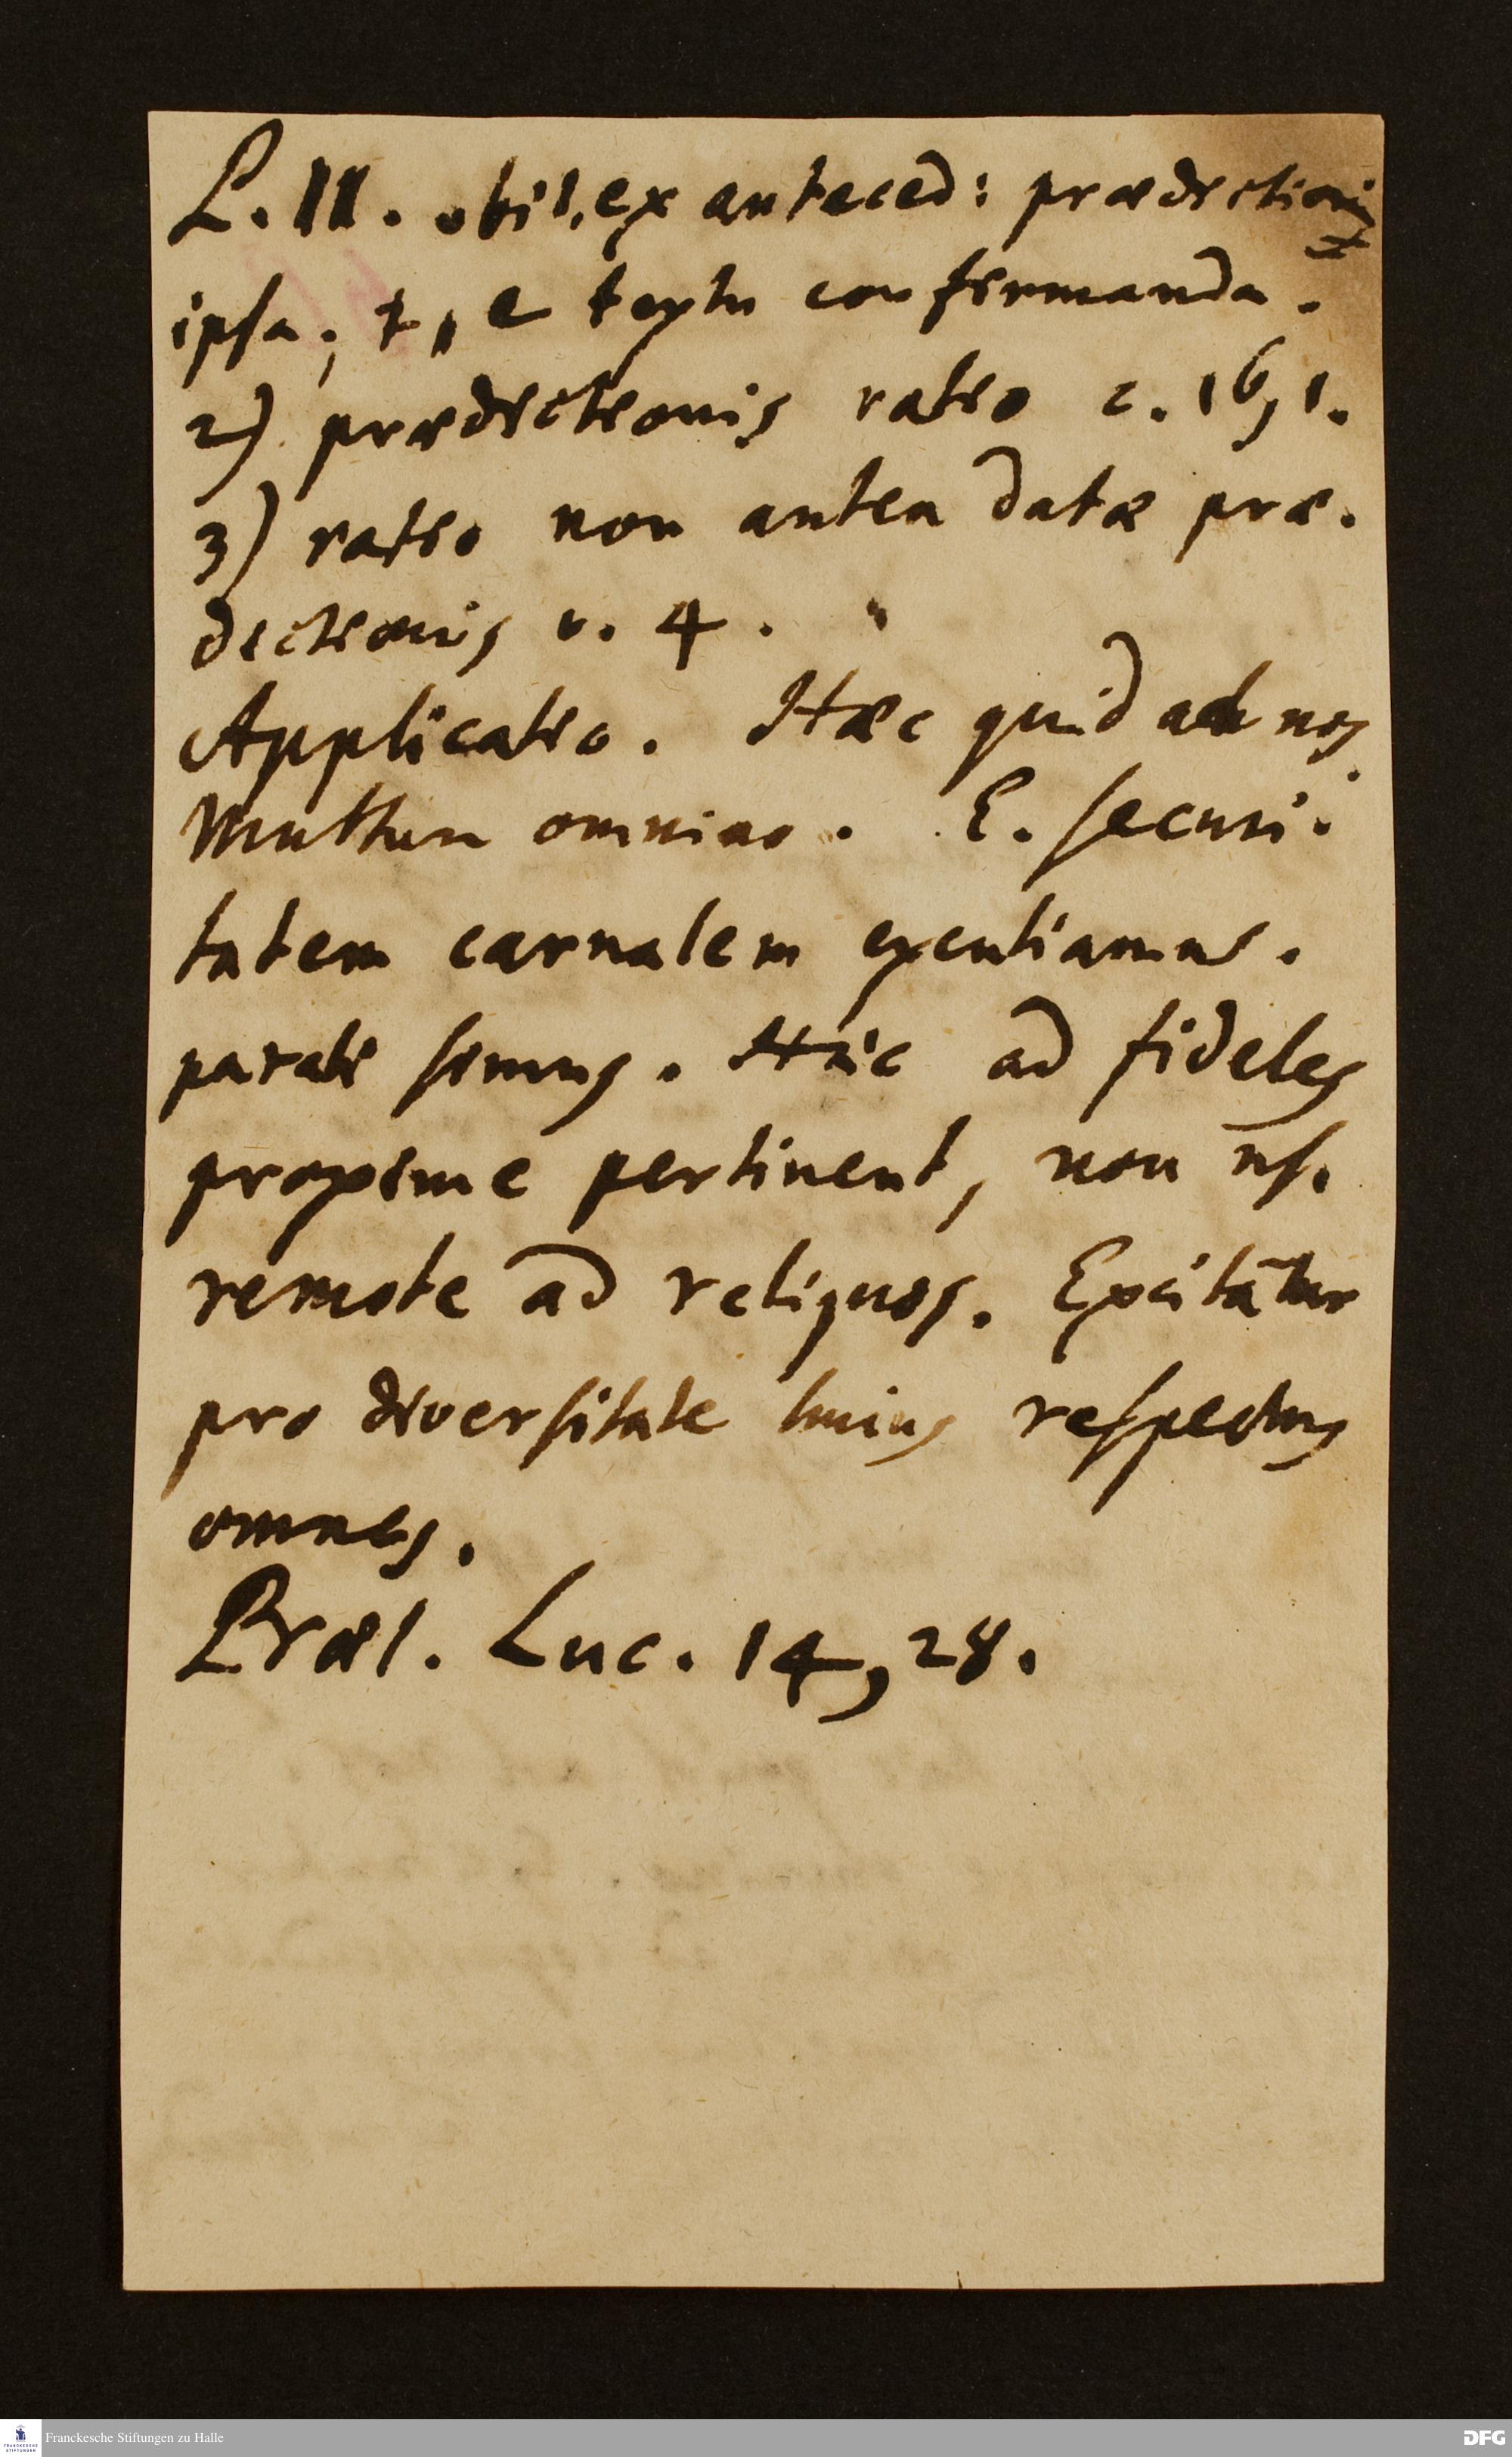 L. III. obil. ex anteced: prædictionis
ipsa; e textu confirmanda.
2) prædictionis ratio c. 16, 1.
3) ratio non antea datæ præ-
dictionis v. 4.
Applicatio. Hæc quid ad nos
Multum omnino. E. securi-
tatem carnalem excutiamus.
parati simus. Hæc ad fideles
proxime pertinent, non nisi
remote ad reliquos. Excitātur
pro diversitate huius respectus
omnes.
Præl. Luc. 14, 28.
Franckesche Stiftungen zu Halle
DFG